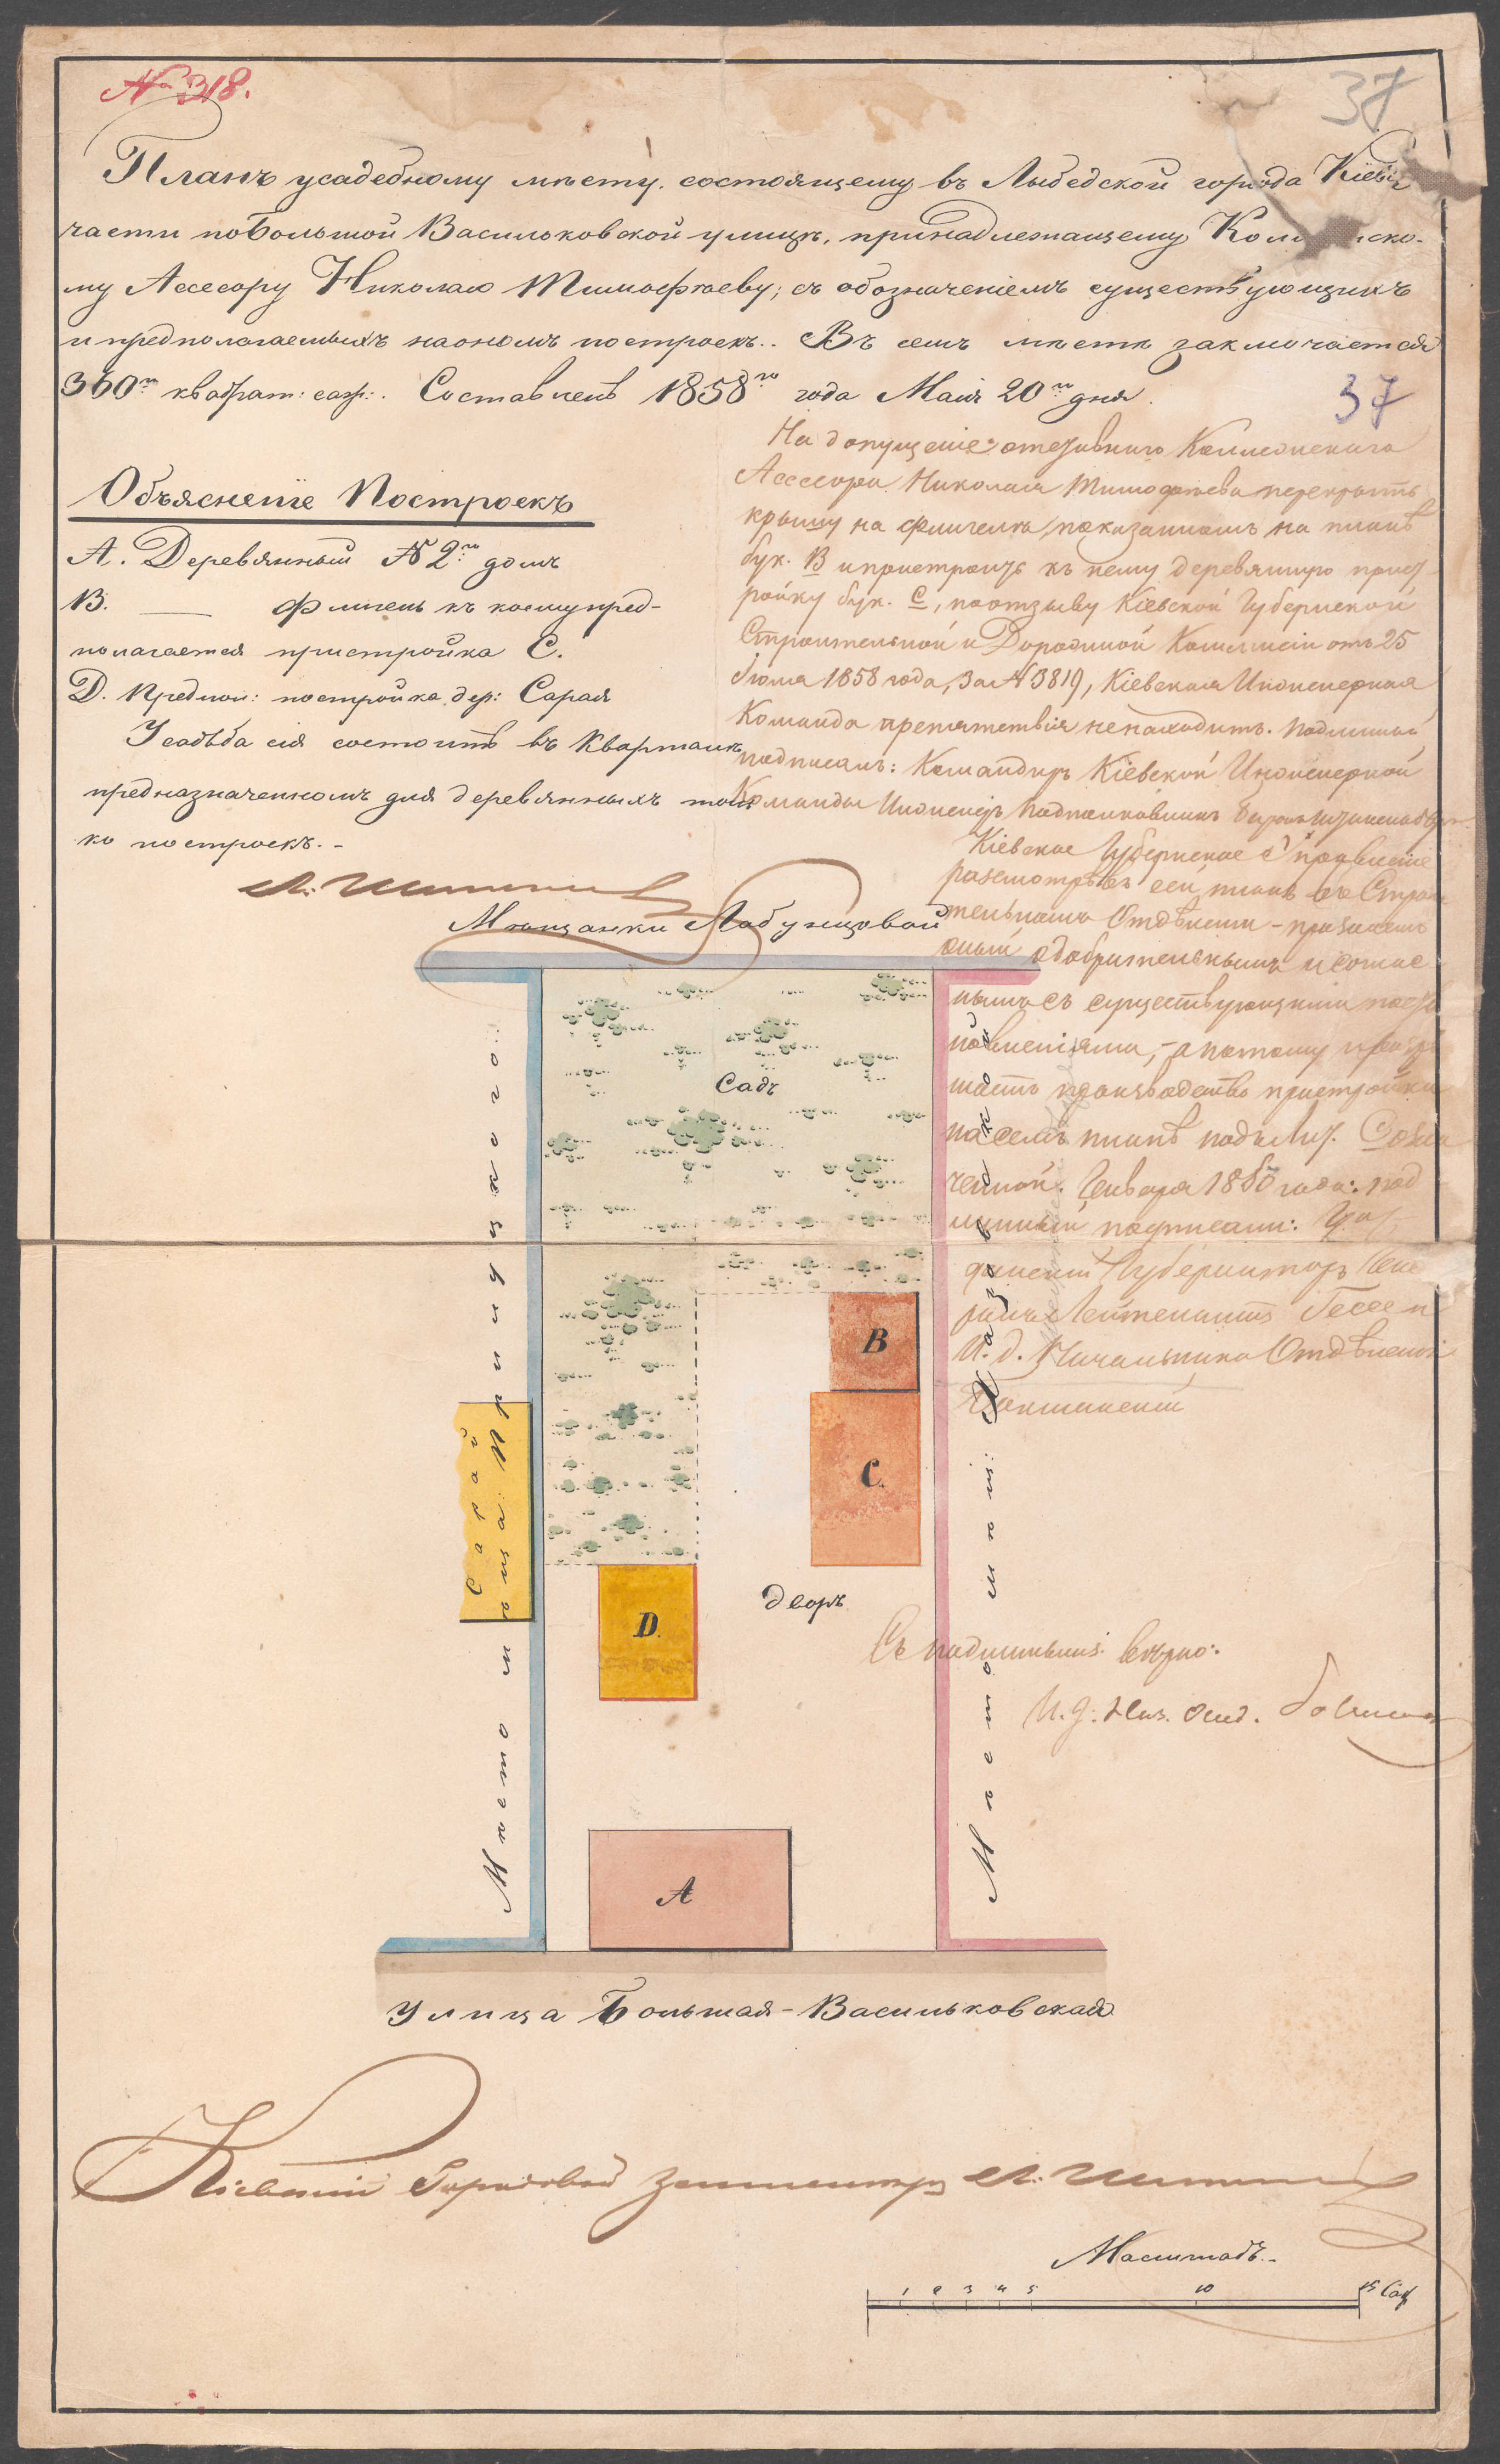 № 318.
37
Планъ усадебному мѣсту, состоящему въ Лыбедской города Кіева
части по Большой Васильковской улицѣ, принадлежащему
му Ассесору Николаю Тимофѣеву; съ обозначеніемъ существующихъ
и предполагаемыхъ на ономъ построекъ. Въ семъ мѣстѣ заключается
360ть квадрат: саж:. Составленъ 1858го года Маія 20го дня.
37
Объясненіе Построекъ
А. Деревянный № 2й домъ
В. — Флигель къ коему пред-
полагается пристройка С.
D. Предпол: постройка дер: Сарая
Усадьба сія состоитъ въ Кварталѣ
предназначенномъ для деревянныхъ толь
ко построекъ.-
На допущеніе отставнаго Коллежскаго
Ассесора Николая Тимофѣева перекрыть
крышу на флигелѣ, показанномъ на планѣ
бук. В и пристроить къ нему деревянную прист
ройку бук. С, по отзыву Кіевской Губернской
Строительной и Дорожной Коммисіи отъ 25
Іюля 1858 года, за № 3819, Кіевская Инженерная
Команда препятствія не находитъ. Подлинный
подписалъ: Командиръ Кіевской Инженерной
Команды Инженеръ Подполковникъ Баронъ
Кіевское Губернское Правленіе
разсмотрѣвъ сей планъ въ Строи
тельномъ Отдѣленіи - признаетъ
оный одобрительнымъ и соглас
нымъ съ существующими поста
новленіями, - а потому
производство пристройки
на семъ планѣ подъ лит. С
ченной. Генваря 1860 года. Под
линный подписали: Граж
данскій Губернаторъ Гене
ралъ Лейтенантъ Гессе и
И. д. Начальника Отдѣленія
Мѣщанки Лабунцовой
Садъ
В
С.
D.
дворъ
А
Сарай
Мѣсто мѣща:
Мѣсто мѣщ:
Съ подлиннымъ вѣрно:
Улица Большая-Васильковская
Кіевскій Городовой Землемѣръ
Масштабъ.-
1 2 3 4 5 10 15 Саж